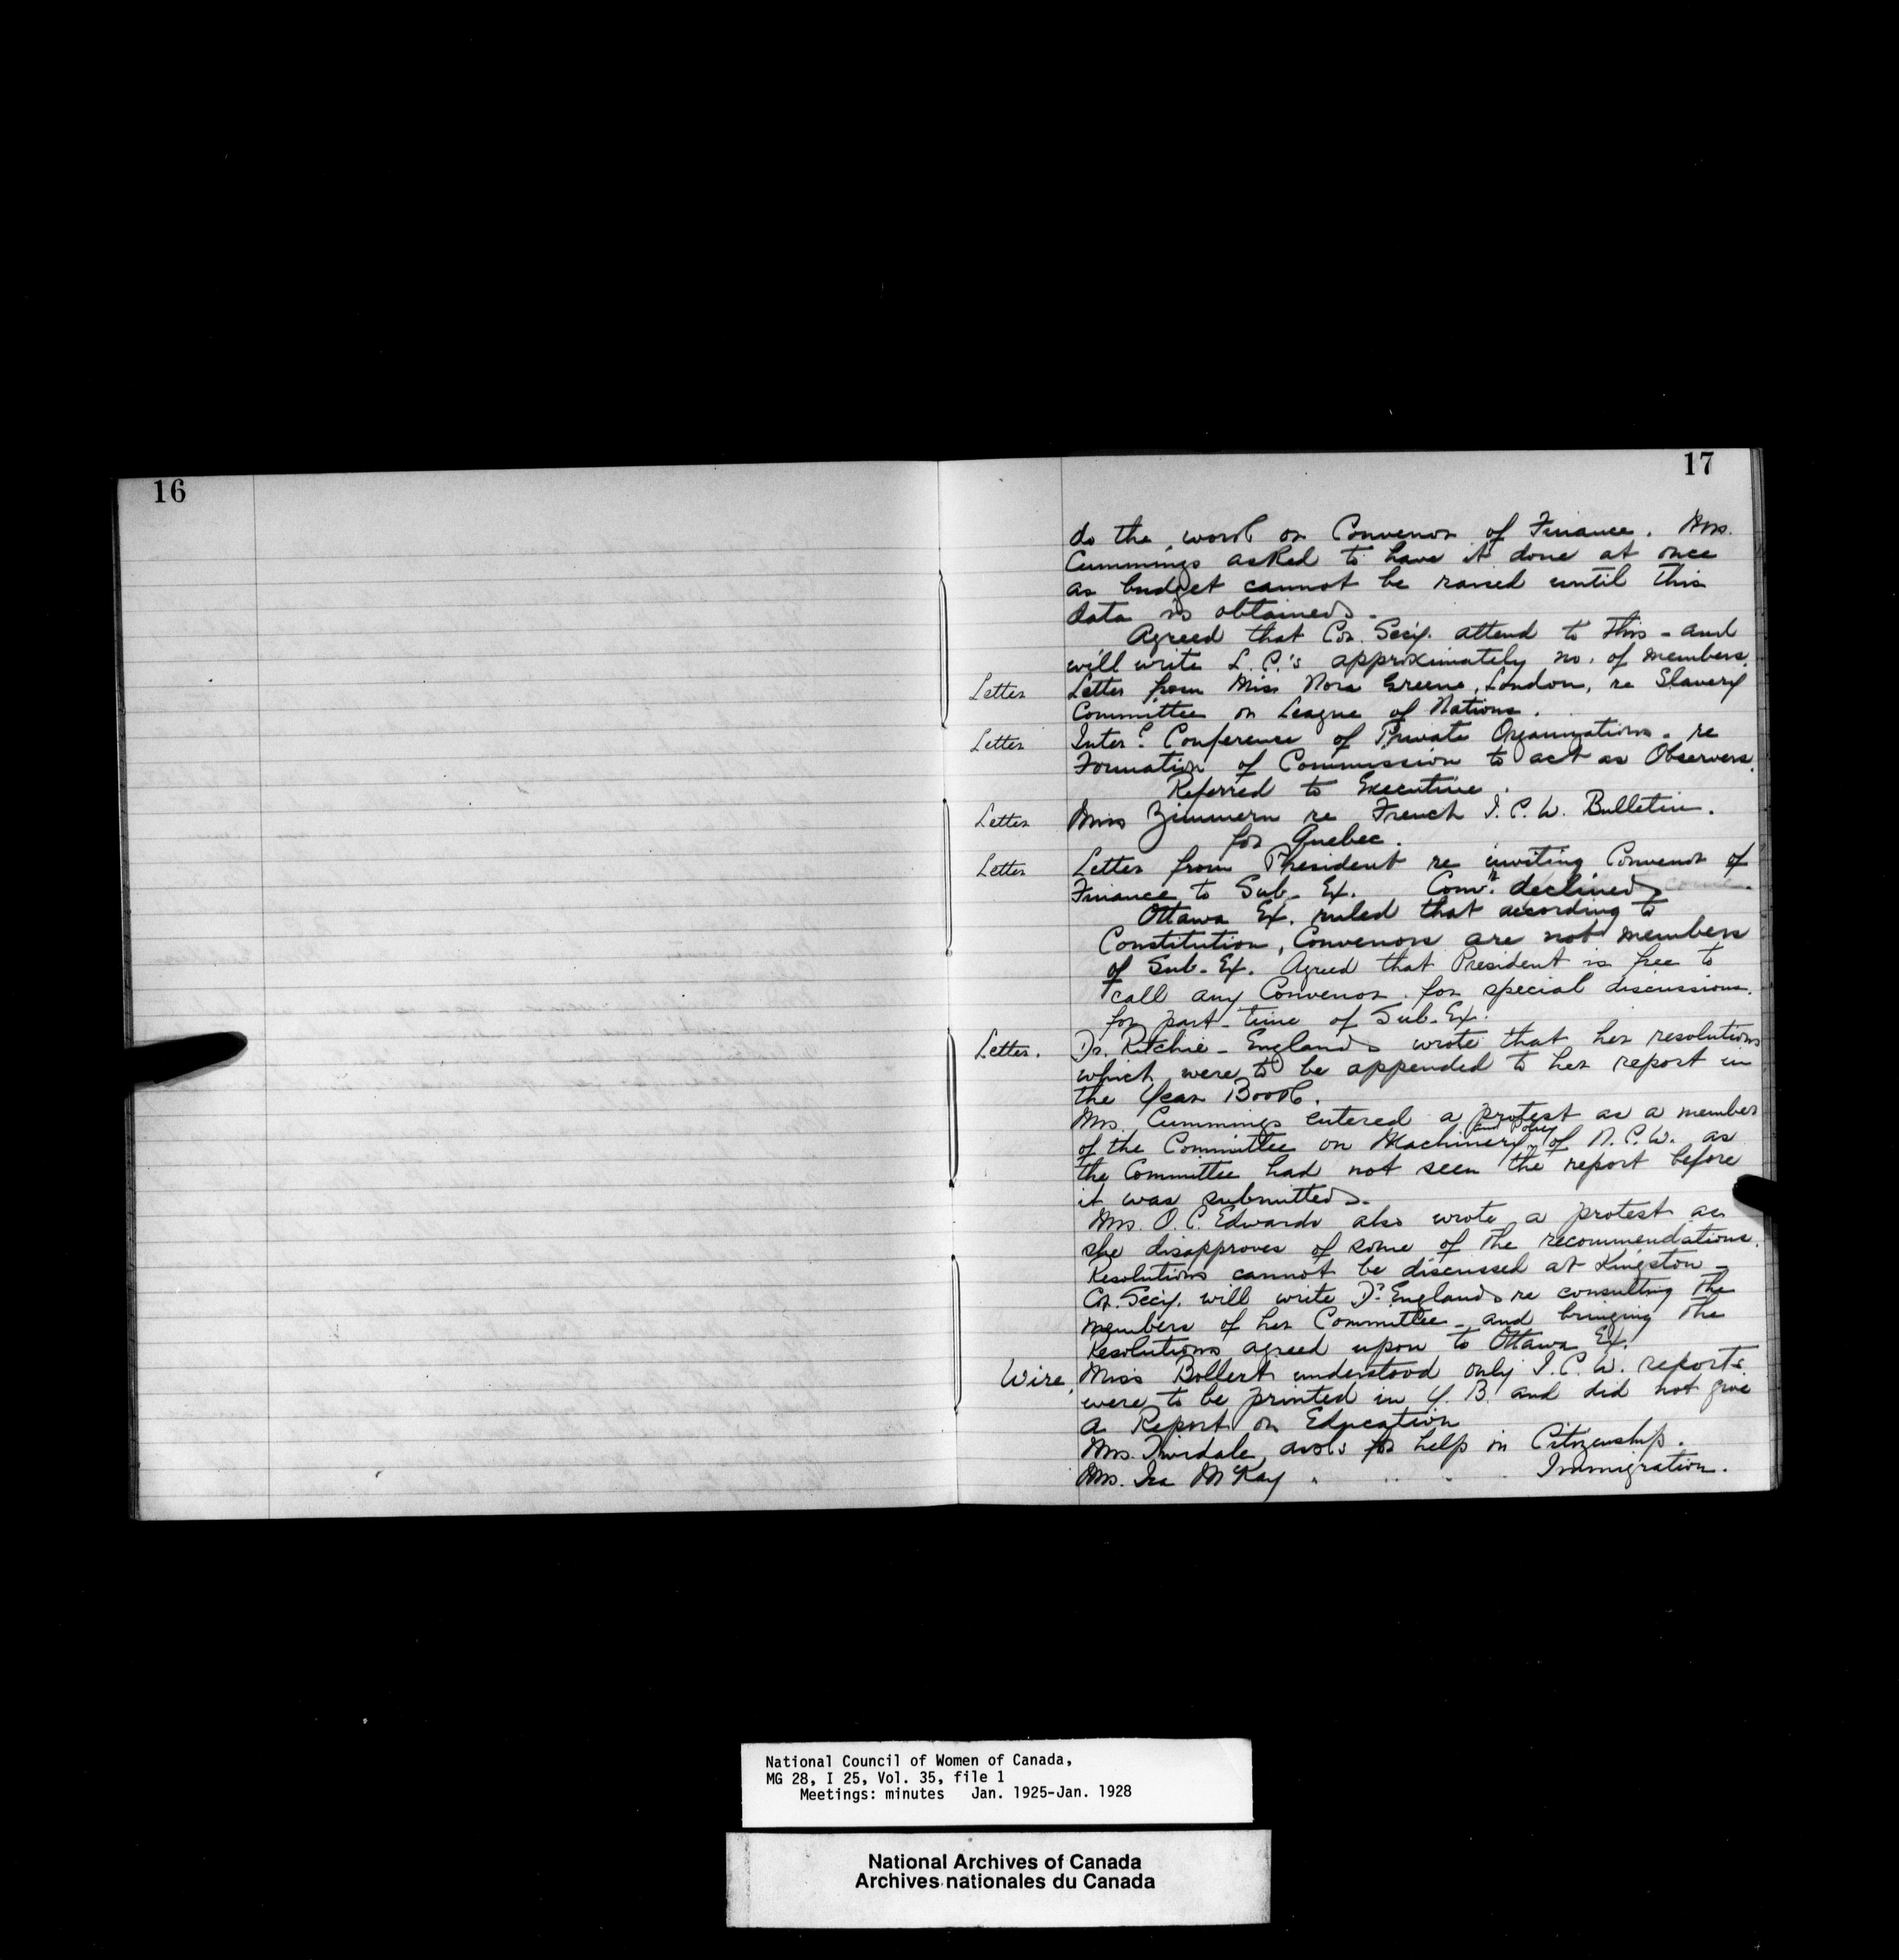 16
17
do the work on Convenor of Finance. Mrs.
Cummings asked to have it done at once
as budget cannot be raised until this
data is obtained.
Agreed that Cor. Sec'y. attend to this - and
will write L. C.'s approximately no. of members.
Letter Letter from Miss Nora Greene, London, re Slavery
Committee on League of Nations.
Letter Inter.l Conference of Private Organizations - re
Formation of Commission to act as Observers.
Referred to Executive.
Letter Miss Zimmern re French I. C. W. Bulletin.
for Quebec.
Letter Letter from President re inviting Convenor of
Finance to Sub-Ex. Conv.r declined
Ottawa Ex. ruled that according to
Constitution, Convenors are not members
of Sub-Ex. Agreed that President is free to
call any Convenor for special discussions
for part-time of Sub-Ex.
Letter. Dr. Ritchie-England wrote that her resolutions
which were to be appended to her report in
the Year Book.
Mrs. Cummings entered a protest as a member
of the Committee on Machinery and Policy of N. C. W. as
the Committee had not seen the report before
it was submitted.
Mrs. O. C. Edwards also wrote a protest as
she disapproves of some of the recommendations.
Resolutions cannot be discussed at Kingston -
Cor. Sec'y. will write Dr. England re consulting the
members of her Committee - and bringing the
Resolutions agreed upon to Ottawa Ex.
Wire, Miss Bollert understood only I. C. W. reports
were to be printed in Y. B. and did not give
a Report on Education
Mrs. asks for help in Citizenship.
Mrs. Ira McKay " " " " Immigration.
National Council of Women of Canada,
MG 28, I 25, Vol. 35, file 1
Meetings: minutes Jan. 1925-Jan. 1928
National Archives of Canada
Archives nationales du Canada